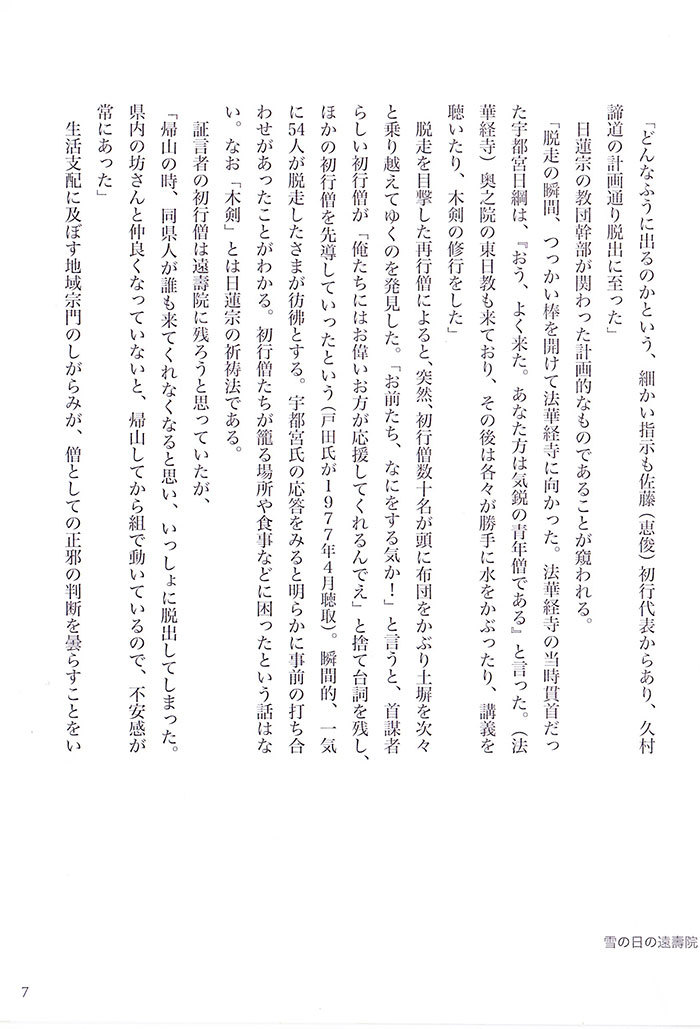 「どんなふうに出るのかという、細かい指示も佐藤（恵俊）初行代表からあり、久村
諦道の計画通り脱出に至った」
日蓮宗の教団幹部が関わった計画的なものであることが窺われる。
「脱走の瞬間、つっかい棒を開けて法華経寺に向かった。法華経寺の当時貫首だっ
た宇都宮日綱は、『おう、よく来た。あなた方は気鋭の青年僧である』と言った。（法
華経寺）奥之院の東日教も来ており、その後は各々が勝手に水をかぶったり、講義を
聴いたり、木剣の修行をした」
脱走を目撃した再行僧によると、突然、初行僧数十名が頭に布団をかぶり土塀を次々
と乗り越えてゆくのを発見した。「お前たち、なにをする気か！」と言うと、首謀者
らしい初行僧が「俺たちにはお偉いお方が応援してくれるんでえ」と捨て台詞を残し、
ほかの初行僧を先導していったという（戸田氏が１９７７年４月聴取）。瞬間的、一気
に54人が脱走したさまが彷彿とする。宇都宮氏の応答をみると明らかに事前の打ち合
わせがあったことがわかる。初行僧たちが籠る場所や食事などに困ったという話はな
い。なお「木剣」とは日蓮宗の祈祷法である。
証言者の初行僧は遠壽院に残ろうと思っていたが、
「帰山の時、同県人が誰も来てくれなくなると思い、いっしょに脱出してしまった。
県内の坊さんと仲良くなっていないと、帰山してから組で動いているので、不安感が
常にあった」
生活支配に及ぼす地域宗門のしがらみが、僧としての正邪の判断を曇らすことをい
雪の日の遠壽院
7